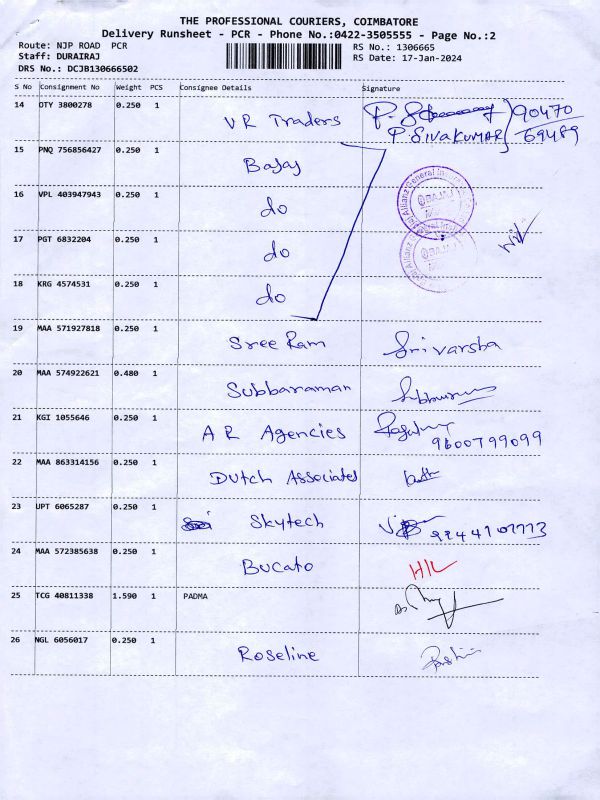 THE PROFESSIONAL COURIERS, COIMBATORE
Delivery Runsheet - PCR - Phone No.:0422-3505555 - Page No.:2
Route: NJP ROAD PCR
RS No.: 1306665
Staff: DURAIRAJ
RS Date: 17-Jan-2024
DRS No.: DCJB130666502
S No Consignment No Weight PCS Consignee Details Signature
14 DTY 3800278 0.250 1 VR Traders 90470
P. SIVAKUMAR 69489
15 PNQ 756856427 0.250 1 Bajaj
16 VPL 403947943 0.250 1 do
17 PGT 6832204 0.250 1 do
18 KRG 4574531 0.250 1 do
19 MAA 571927818 0.250 1 Sree Ram Srivarsha
20 MAA 574922621 0.480 1 Subbaraman
21 KGI 1055646 0.250 1 A R Agencies
9600799099
22 MAA 863314156 0.250 1 Dutch Associates
23 UPT 6065287 0.250 1 Skytech
24 MAA 572385638 0.250 1 Bucato H/L
25 TCG 40811338 1.590 1 PADMA
26 NGL 6056017 0.250 1 Roseline